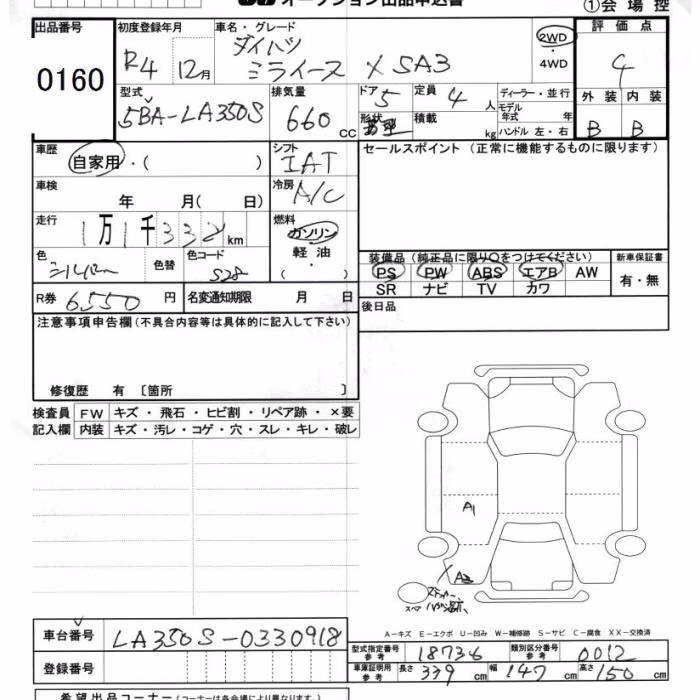 オークション出品申込書
①会場控
出品番号 初度登録年月 車名・グレード 評価点
0160 R4 12月 ダイハツ ミライース X SA3 2WD・4WD 4
外装 内装
B B
型式 排気量 ドア 定員 ディーラー・並行
5BA-LA350S 660cc 5 4人 モデル年式 年
形状 積載 kg ハンドル 左・右
車歴 シフト セールスポイント(正常に機能するものに限ります)
自家用・( ) IAT
車検 冷房
年 月( 日) A/C
走行 燃料
1万1千332km ガソリン
軽油
・( )
色 色替 色コード
シルバー S28
装備品(純正品に限り○をつけてください) 新車保証書
PS PW ABS エアB AW 有・無
SR ナビ TV カワ
R券 6550円 名変通知期限 月 日 後日品
注意事項申告欄(不具合内容等は具体的に記入して下さい)
修復歴 有〔箇所 〕
検査員 FW キズ・飛石・ヒビ割・リペア跡・×要
記入欄 内装 キズ・汚レ・コゲ・穴・スレ・キレ・破レ
A1
A2
スペア
A-キズ E-エクボ U-凹み W-補修跡 S-サビ C-腐食 XX-交換済
車台番号 LA350S-0330918
型式指定番号 参考 18736 類別区分番号 参考 0012
登録番号
車庫証明用 参考 長さ 339cm 幅 147cm 高さ 150cm
希望出品コーナー(コーナーは各会場により異なります。)